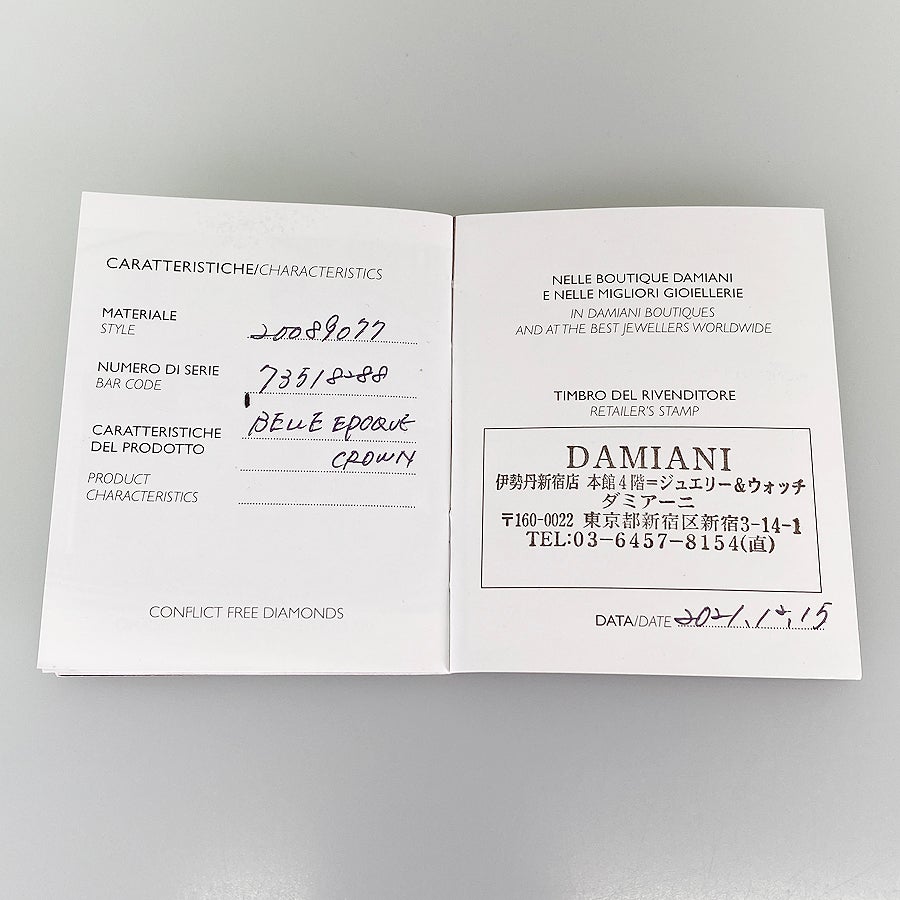 CARATTERISTICHE/CHARACTERISTICS
MATERIALE
STYLE
20089077
NUMERO DI SERIE
BAR CODE
73518288
CARATTERISTICHE
DEL PRODOTTO
BELLE EPOQUE
CROWN
PRODUCT
CHARACTERISTICS
CONFLICT FREE DIAMONDS
NELLE BOUTIQUE DAMIANI
E NELLE MIGLIORI GIOIELLERIE
IN DAMIANI BOUTIQUES
AND AT THE BEST JEWELLERS WORLDWIDE
TIMBRO DEL RIVENDITORE
RETAILER'S STAMP
DAMIANI
伊勢丹新宿店 本館4階=ジュエリー&ウォッチ
ダミアーニ
〒160-0022 東京都新宿区新宿3-14-1
TEL:03-6457-8154(直)
DATA/DATE 2021.12.15